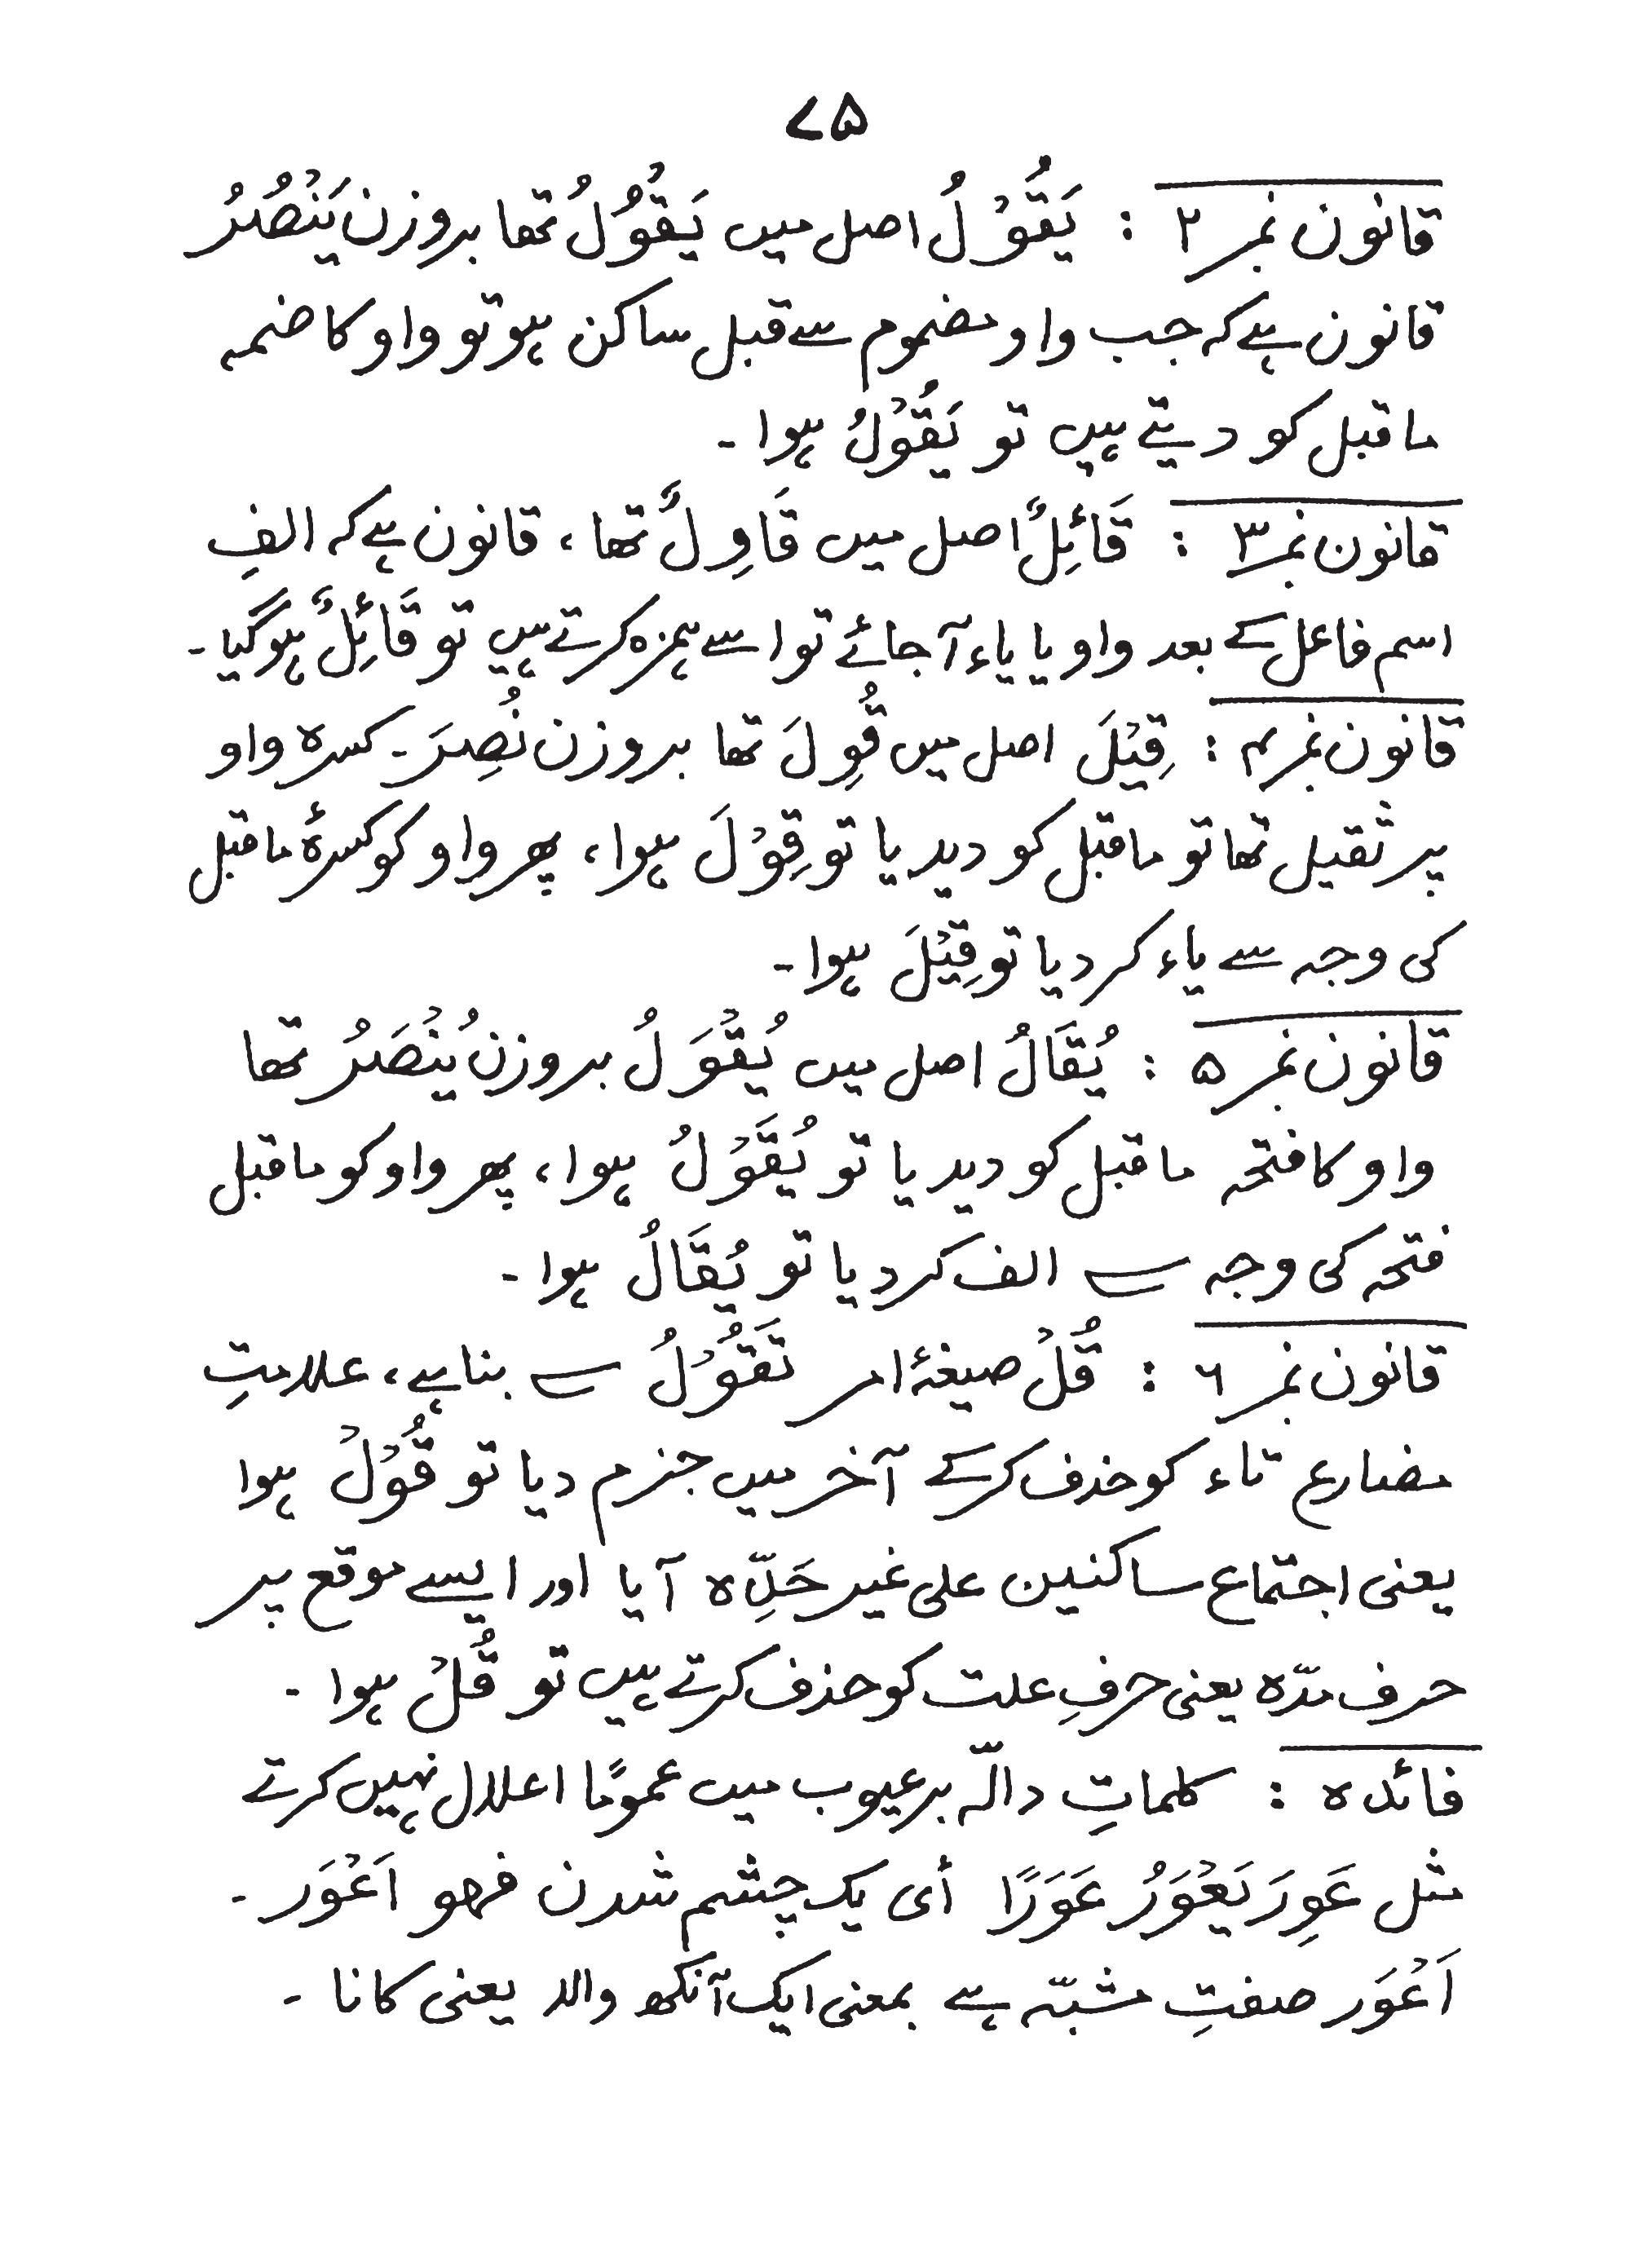 ۷۵
قانون نمبر ۲ : یَقُوْلُ اصل میں یَقْوُلُ تھا بروزن یَنْصُرُ
قانون ہے کہ جب واو مضموم سے قبل ساکن ہو تو واو کا ضمہ
ماقبل کو دیتے ہیں تو یَقُوْلُ ہوا ۔
قانون نمبر ۳ : قَائِلٌ اصل میں قَاوِلٌ تھا ، قانون ہے کہ الفِ
اسم فاعل کے بعد واو یا یاء آجائے تو اسے ہمزہ کرتے ہیں تو قَائِلٌ ہوگیا ۔
قانون نمبر ۴ : قِیْلَ اصل میں قُوِلَ تھا بروزن نُصِرَ ۔ کسرہ واو
پر ثقیل تھا تو ماقبل کو دیدیا تو قِوْلَ ہوا ، پھر واو کو کسرۂ ماقبل
کی وجہ سے یاء کردیا تو قِیْلَ ہوا ۔
قانون نمبر ۵ : یُقَالُ اصل میں یُقْوَلُ بروزن یُنْصَرُ تھا
واو کا فتحہ ماقبل کو دیدیا تو یُقَوْلُ ہوا ، پھر واو کو ماقبل
فتحہ کی وجہ سے الف کردیا تو یُقَالُ ہوا ۔
قانون نمبر ٦ : قُلْ صیغۂ امر تَقُوْلُ سے بنا ہے ، علامتِ
مضارع تاء کو حذف کرکے آخر میں جزم دیا تو قُوْلْ ہوا
یعنی اجتماع ساکنین علی غیر حَدِّہ آیا اور ایسے موقع پر
حرف مدّہ یعنی حرفِ علت کو حذف کرتے ہیں تو قُلْ ہوا ۔
فائدہ : کلماتِ دالّہ برعیوب میں عموماً اعلال نہیں کرتے
مثل عَوِرَ یَعْوَرُ عَوَرًا أی یک چشم شدن فھو اَعْوَر ۔
اَعْوَر صفتِ مشبّہ ہے بمعنی ایک آنکھ والا یعنی کانا ۔